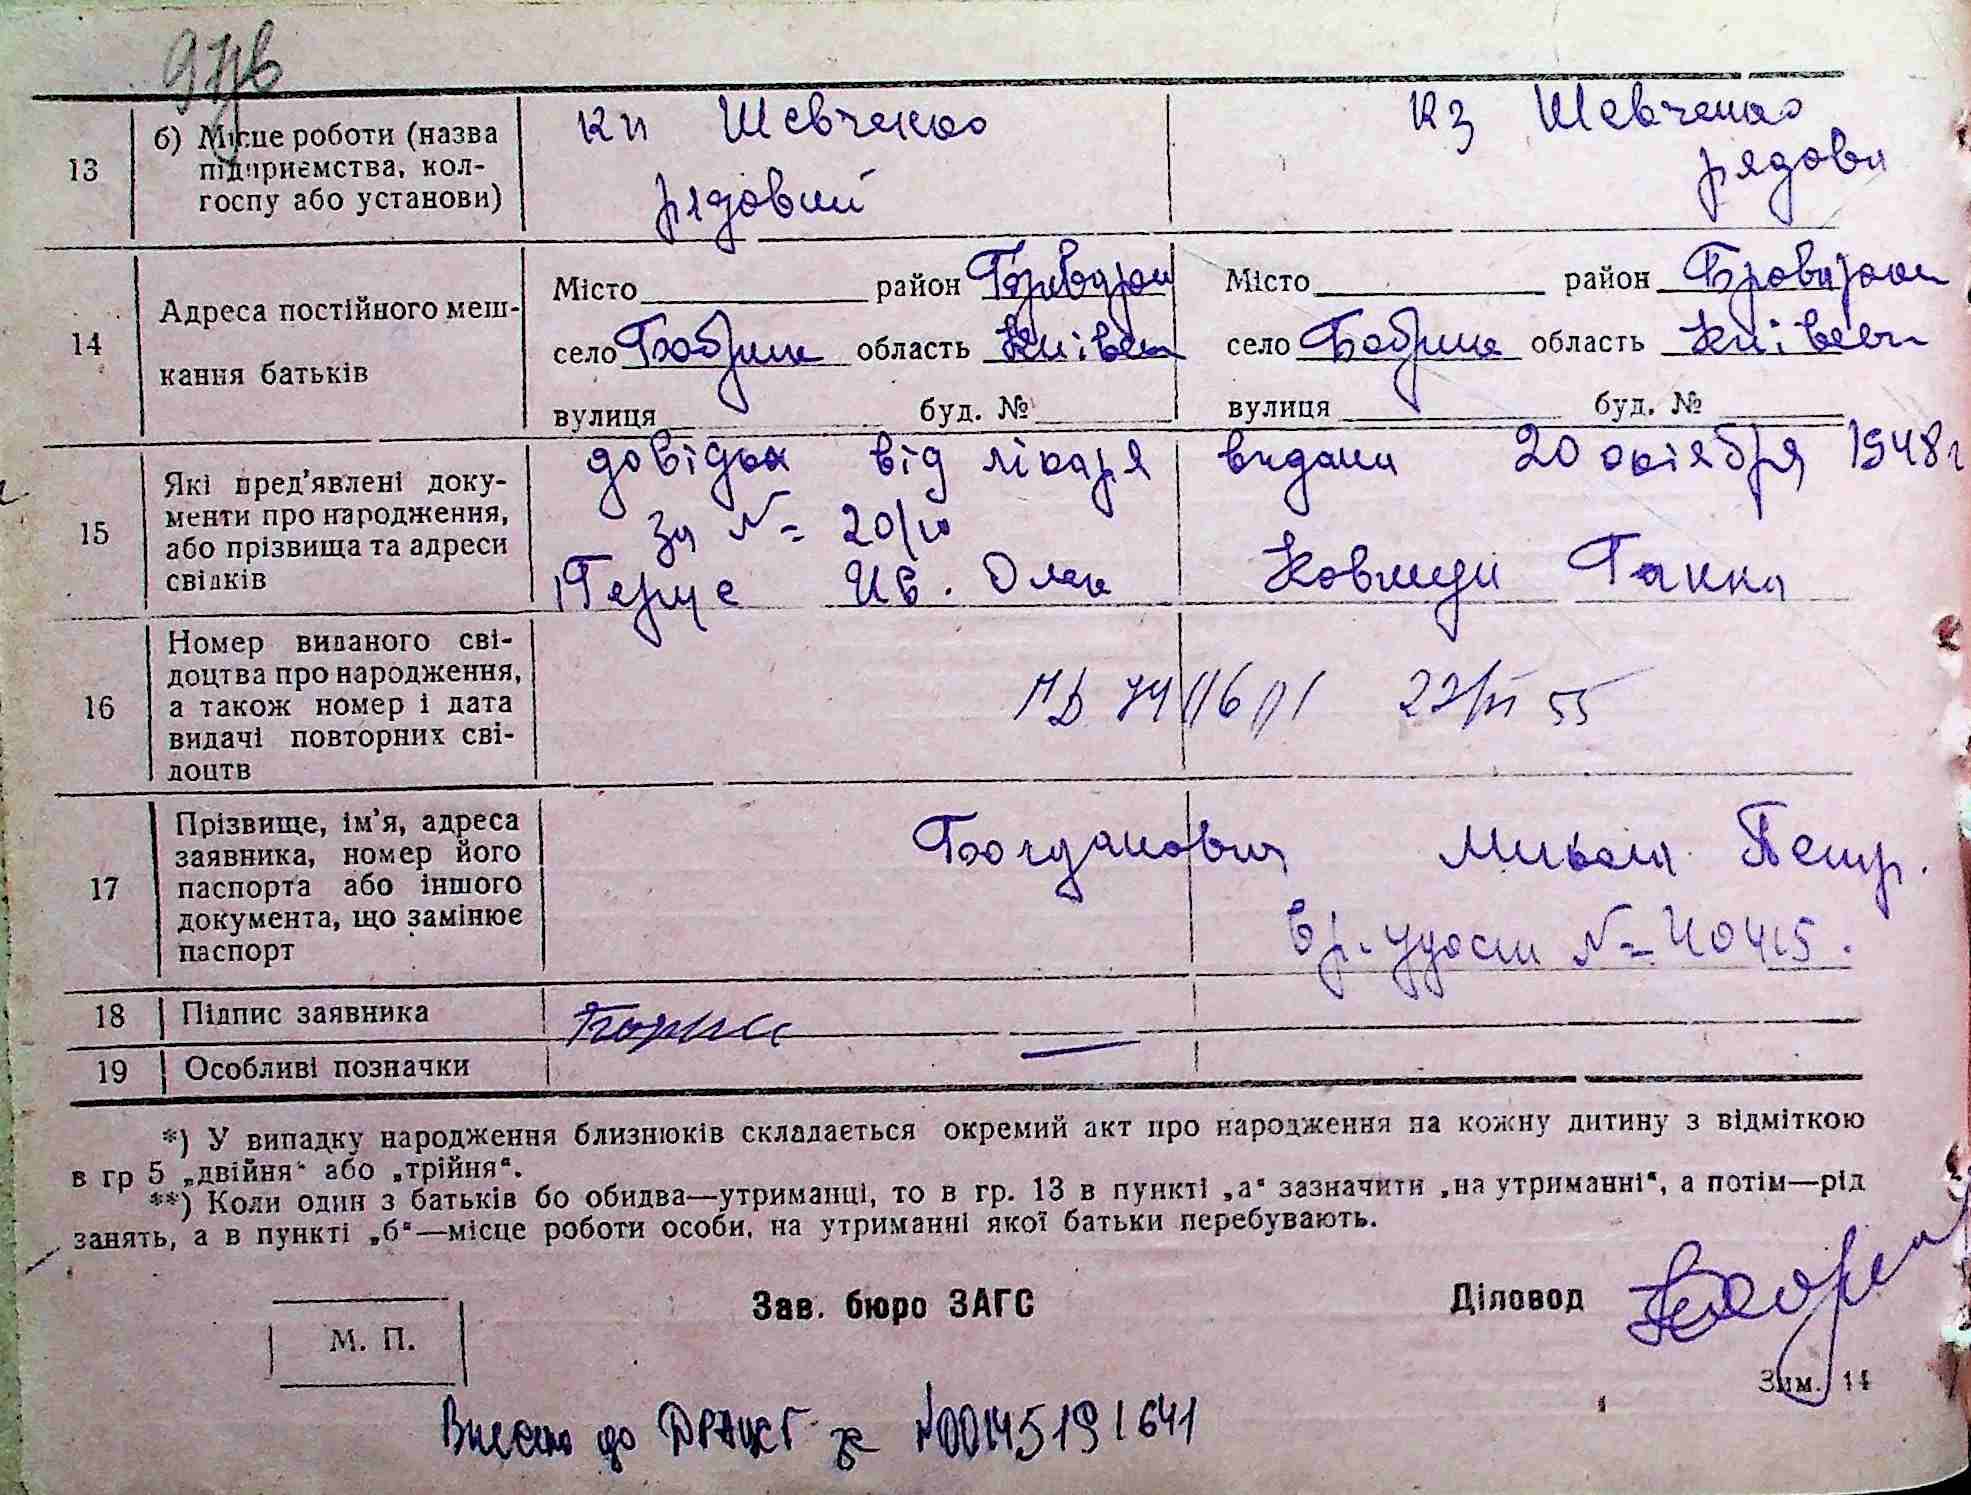 13 б) Місце роботи (назва підприємства, колгоспу або установи)
кп Шевченко
рядовий
кз Шевченко
рядова
14 Адреса постійного меш-
кання батьків
Місто район Броварськ
село Бобрик область Київськ
вулиця буд. №
Місто район Броварськ
село Бобрик область Київськ
вулиця буд. №
15 Які пред'явлені доку-
менти про народження,
або прізвища та адреси
свідків
довідка від лікаря видана 20 октября 1948 г
За № 20/10
Ив. Ганна
16 Номер виданого сві-
доцтва про народження,
а також номер і дата
видачі повторних сві-
доцтв
55
17 Прізвище, ім'я, адреса
заявника, номер його
паспорта або іншого
документа, що замінює
паспорт
Богданович Микола Петр.
Вр. удост №
18 Підпис заявника
19 Особливі позначки
*) У випадку народження близнюків складається окремий акт про народження на кожну дитину з відміткою
в гр 5 „двійня“ або „трійня“.
**) Коли один з батьків бо обидва—утриманці, то в гр. 13 в пункті „а“ зазначити „на утриманні“, а потім—рід
занять, а в пункті „б“—місце роботи особи, на утриманні якої батьки перебувають.
Зав. бюро ЗАГС Діловод
М. П.
Зам. 14
Внесено до ДРАЦСГ за №00145191641